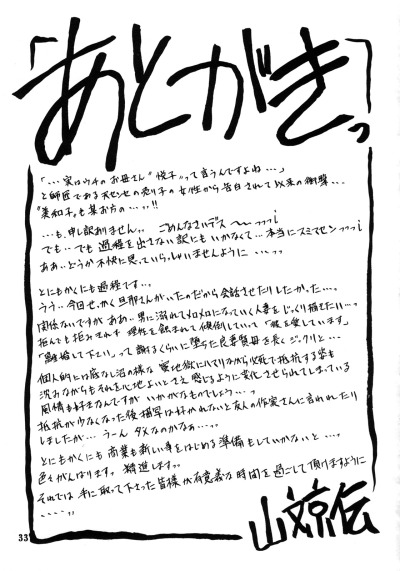 「あとがきっ」
「…実はウチのお母さん"悦子"って言うんですよね…」
と師匠である天センセの売り子の女性から告白されて以来の衝撃…
"美和子"も某お方の…!!
…も、申し訳ありません。ごめんなさいデス〜〜っっっ!
でも…でも過程を出さない訳にもいかなくて…本当にスミマセンっっっ!
ああ…どうか不快に思っていらっしゃいませんように…っっ
とにもかくにも過程です…。
うう…今回せっかく旦那さんがいたのだから会話させたりしたかった…。
関係ないですが、ああ…男に溺れてメロメロになっていく人妻をじっくり描きたい…っ
拒んでも拒みきれず理性を飲まれて傾倒していって「彼を愛しています」
「離婚して下さい」って譲るくらいに堕ちた良妻賢母を長くジックリと…
個人的には底なし沼の様な蟻地獄にハマりながら必死で抵抗する姿も
沈みながらもそれを心地よいとさえ感じるように変化させられてしまっている
風情も好きなんですがいかがなものでしょう…っ
抵抗が少なくなった後の描写は好かれないと友人の作家さんに言われたり
しましたが…うーんダメなのかなぁ…。
とにもかくにも商業も新しい事をはじめる準備もしていかないと…。
色々がんばります。精進します。
それでは手に取って下さった皆様が有意義な時間を過ごして頂けますように
……っ
山文京伝
33